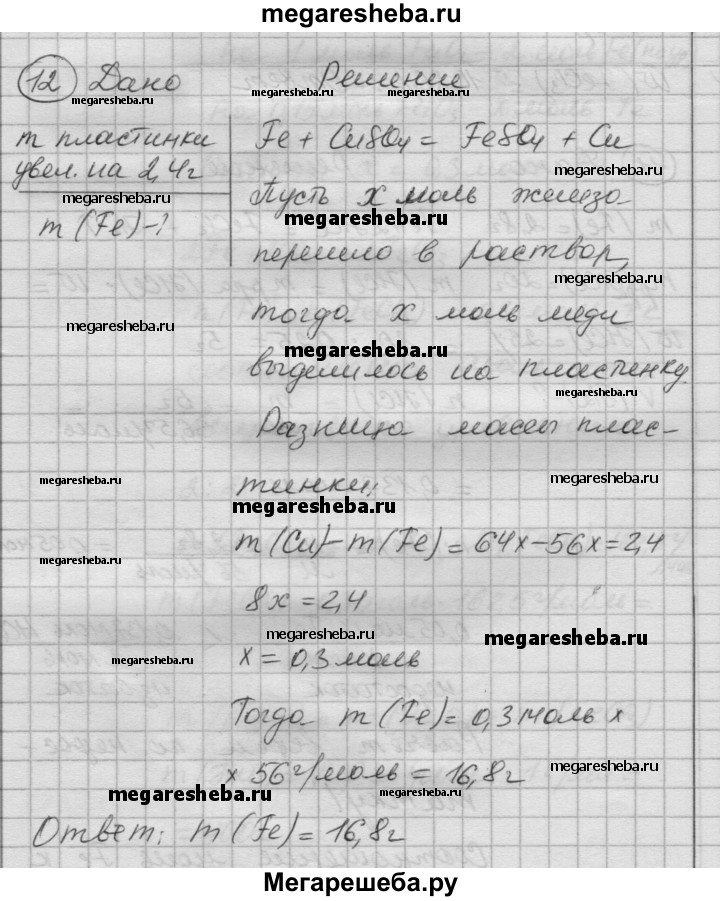 megaresheba.ru
12 Дано Решение
megaresheba.ru megaresheba.ru megaresheba.ru
m пластинки
увел. на 2,4г
Fe + CuSO4 = FeSO4 + Cu
megaresheba.ru
Пусть x моль железа
megaresheba.ru
m (Fe) - ?
перешло в раствор,
megaresheba.ru
тогда x моль меди
megaresheba.ru
megaresheba.ru
выделилось на пластинку.
megaresheba.ru
Разница массы плас-
тинки:
megaresheba.ru megaresheba.ru
megaresheba.ru
m (Cu) - m (Fe) = 64x - 56x = 2,4
megaresheba.ru
8x = 2,4
megaresheba.ru megaresheba.ru
x = 0,3 моль
megaresheba.ru
Тогда m (Fe) = 0,3 моль x
x 56 г/моль = 16,8г
megaresheba.ru
megaresheba.ru megaresheba.ru
Ответ: m (Fe) = 16,8г
Мегарешеба.ру